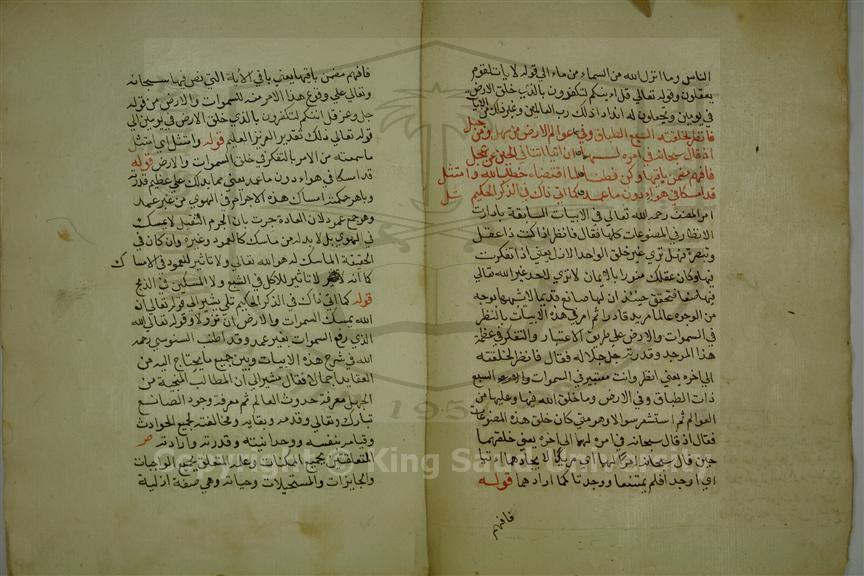 الناس وما انزل الله من السماء من ماء الي قوله لايات لقوم
يعقلون وقوله تعالي قل اءينكم لتكفرون بالذي خلق الارض
في يومين وتجعلون له اندادا ذلك رب العالمين وغير ذلك من الايات
فانظر لخلقته السبع الطباق وفي عوالم الارض من سهل ومن جبل
اذ قال سبحانه في امره لهما ان ائتيا اتتا في الحين عن عجل
فافهم مضمن باقيها وكن فطنا لما اقتضاه خطاب الله وامتثل
قد امسكا في هواء دون ما عمد كما اتي ذاك في الذكر الحكيم تلي
امر المصنف رحمه الله تعالي في الابيات السابقة بادارة
الانظار في المصنوعات كلها فقال فانظر اذا كنت ذا عقل
وتبصرة فهل تري غير خلق الواحد الازل يعني اذا تفكرت
فيها وكان عقلك منورا بالايمان لا تري لاحد غير الله تعالي
فيها صنعا فتحقق حينئذ ان لها صانع قديما لا يشبهها بوجه
من الوجوه عالما مريد قادرا ثم امر في هذه الابيات بالنظر
في السموات والارض علي طريق الاعتبار والتفكر في عظمة
هذا الموجد وقدرته جل جلاله فقال فانظر لخلقته
الي اخره يعني انظر وانت معتبر في السموات السبع
ذات الطباق وفي الارض وما خلق الله فيها وعليها من
العوالم ثم استشعر سوالا وهو متي كان خلق هذه المصنوعات
فقال اذ قال سبحانه في امره لهما الي اخره يعني خلقتهما
حين قال سبحانه امرا لهما اي مريدا لايجادهما ائتيا
اي اوجدا فلم يمتنعا ووجدتا كما ارادهما قوله
فافهم
فافهم مضمن باقيها يعني باقي الاية التي نص فيها سبحانه
وتعالي علي وقوع هذا الامر منه للسموات والارض من قوله
جل وعز قل ائنكم لتكفرون بالذي خلق الارض في يومين الي
قوله تعالي ذلك تقدير العزيز العليم قوله وامتثل اي امتثل
ما سمعته من الامر بالتفكر في خلق السموات والارض قوله
قد امسكا في هواء دون ما عمد يعني مما يدلك علي عظيم قدرته
وباهر حكمته امساك هذه الاجرام في الهوي من غير عمد
وهو جمع عمد لان العادة جرت بان الجرم الثقيل لا يمسك
في الهوي بل لا بد له من ماسك كالعمود وغيره وان كان في
الحقيقة الماسك له هو الله تعالي ولا تاثير للعمود في الامساك
كما انه لا تاثير للاكل في الشبع ولا السكين في الذبح
قوله كما اتي ذاك في الذكر الحكيم تلي يشير الي قوله تعالي ان
الله يمسك السموات والارض ان تزولا وقوله تعالي الله
الذي رفع السموات بغير عمد وقد اطنب السنوسي رحمه
الله في شرح هذه الابيات وبين جميع ما يحتاج اليه من
العقايد اجمالا فقال مشيرا الي ان المطالب المنجية من
الجهل معرفة حدوث العالم ثم معرفة وجود الصانع
تبارك وتعالي وقدمه وبقايه ومخالفته لجميع الحوادث
وقيامه بنفسه ووحدانيته وقدرته وارادته
المتعلقتين بجميع الممكنات وعلمه المتعلق بجميع الواجبات
والجايزات والمستحيلات وحياته وهي صفة ازلية
Copyright © King Saud University
1957